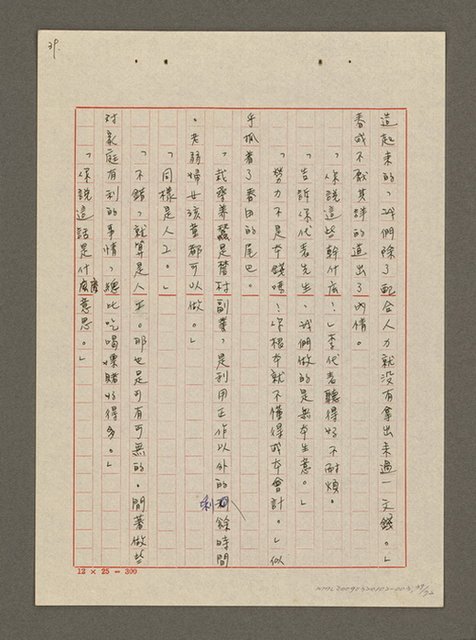 39.
造起来的，我們除了配合人力就没有拿出来過一文錢。」
番成不厭其詳的道出了内情。
「你說這些幹什底？」李代表聽得好不耐煩。
「告訴你代表先生，我們做的是無本生意。」
「勞力不是本錢嗎？你根本就不懂得成本會計。」似
乎抓着了番田的尾巴。
「栽桑養蠶是農村副業，是利用正作以外的剩餘時間
。老弱婦女孩童都可以做。」
「同樣是人工。」
「不錯，就算是人工。那也是可有可無的。閒著做些
对家庭有利的事情，總比吃喝嫖賭好得多。」
「你說這話是什麼意思。」
12 × 25 = 300